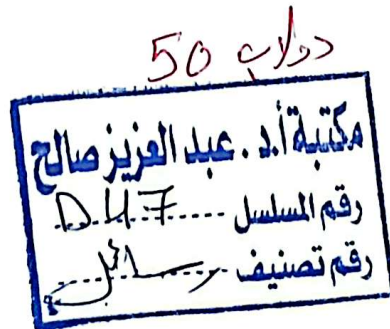 دولاب 50
مكتبة أ.د. عبد العزيز صالح
رقم المسلسل ...... D47
رقم تصنيف ...... رسائل